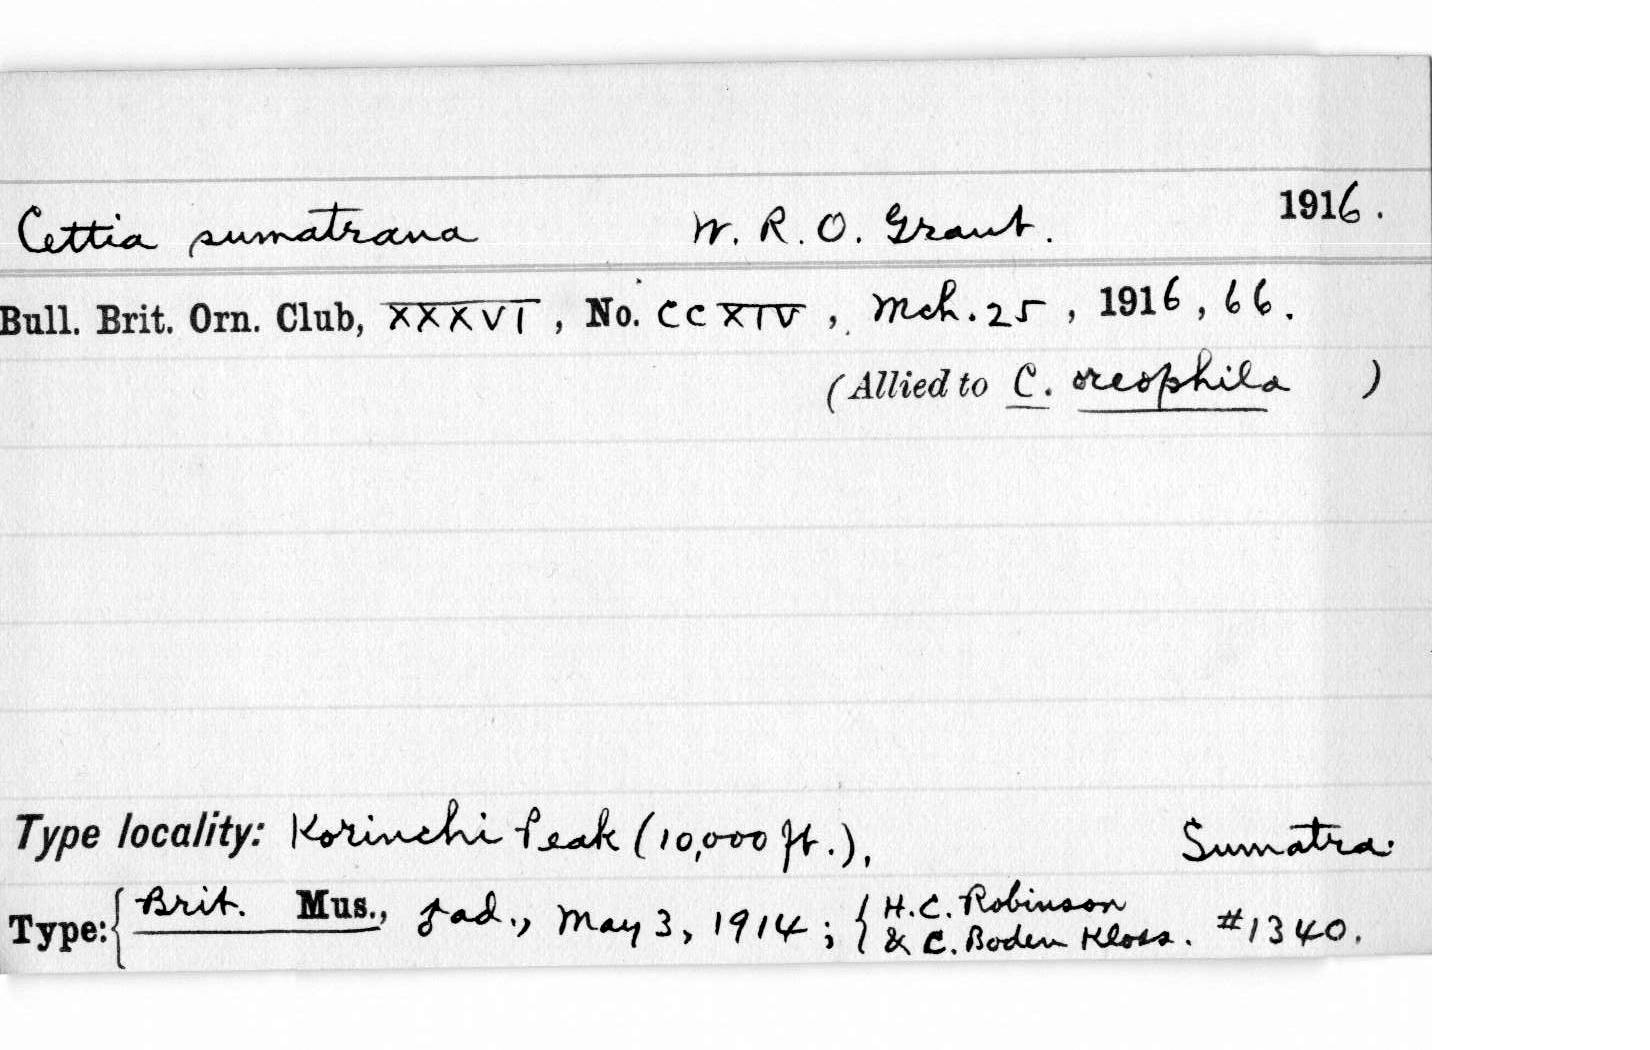 Cettia sumatrana W. R. O. Grant. 1916.
Bull. Brit. Orn. Club, XXXVI, No. CCXIV, Mch. 25, 1916, 66.
(Allied to C. oreophila )
Type locality: Korinchi Peak (10,000 ft.), Sumatra.
Type: { Brit. Mus., ♂ ad., May 3, 1914; { H. C. Robinson
& C. Boden Kloss. #1340.